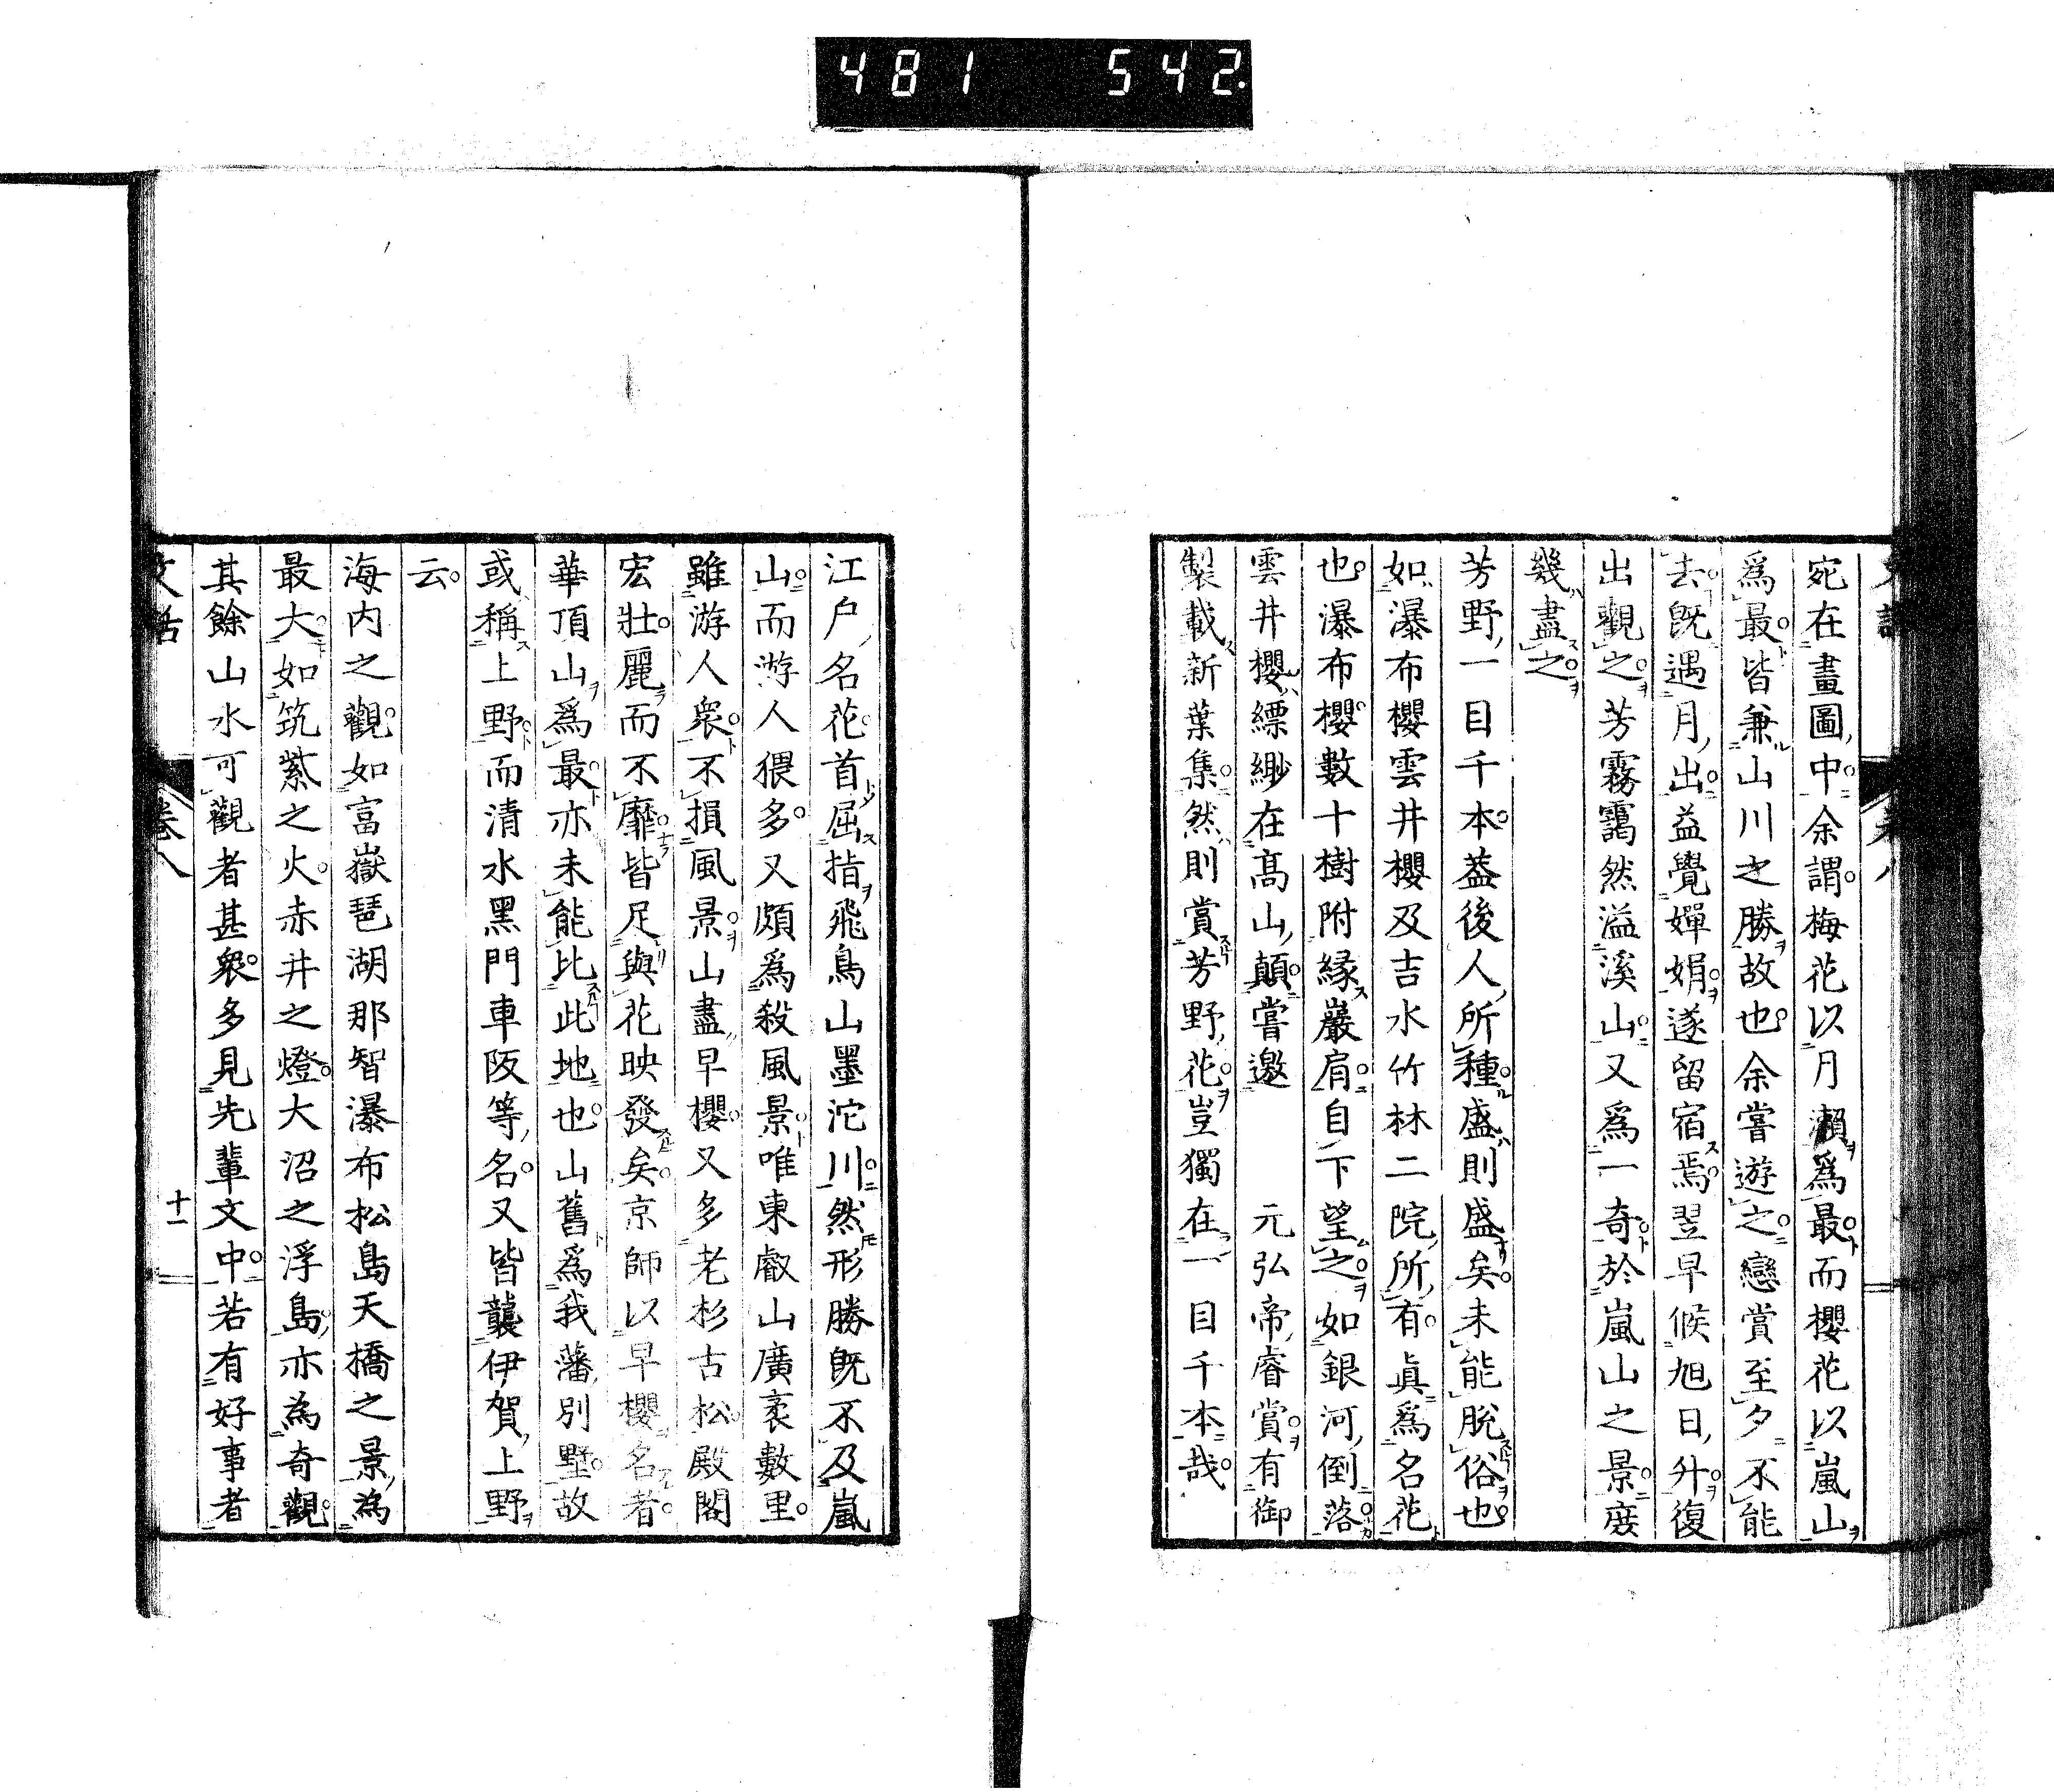 481 542.
宛在畫圖中余謂梅花以月瀨爲最而櫻花以嵐山
爲最皆兼山川之勝故也余嘗遊之戀賞至夕不能
去既遇月出益覺嬋娟遂留宿焉翌早候旭日升復
出觀之芳霧靄然溢溪山又爲一奇於嵐山之景庶
幾盡之
芳野一目千本蓋後人所種盛則盛矣未能脫俗也
如瀑布櫻雲井櫻及吉水竹林二院所有眞爲名花
也瀑布櫻數十樹附緣巖肩自下望之如銀河倒落
雲井櫻縹緲在髙山顛嘗邀　元弘帝睿賞有御
製載新葉集然則賞芳野花豈獨在一目千本哉
江戶名花首屈指飛鳥山墨沱川然形勝既不及嵐
山而游人猥多又頗爲殺風景唯東叡山廣袤數里
雖游人衆不損風景山盡早櫻又多老杉古松殿閣
宏壯麗而不靡皆足與花映發矣京師以早櫻名者
華頂山爲最亦未能比此地也山舊爲我藩別墅故
或稱上野而清水黑門車阪等名又皆襲伊賀上野
云
海内之觀如富嶽琶湖那智瀑布松島天橋之景為
最大如筑紫之火赤井之燈大沼之浮島亦為奇觀
其餘山水可觀者甚衆多見先輩文中若有好事者
文話
卷八
十一